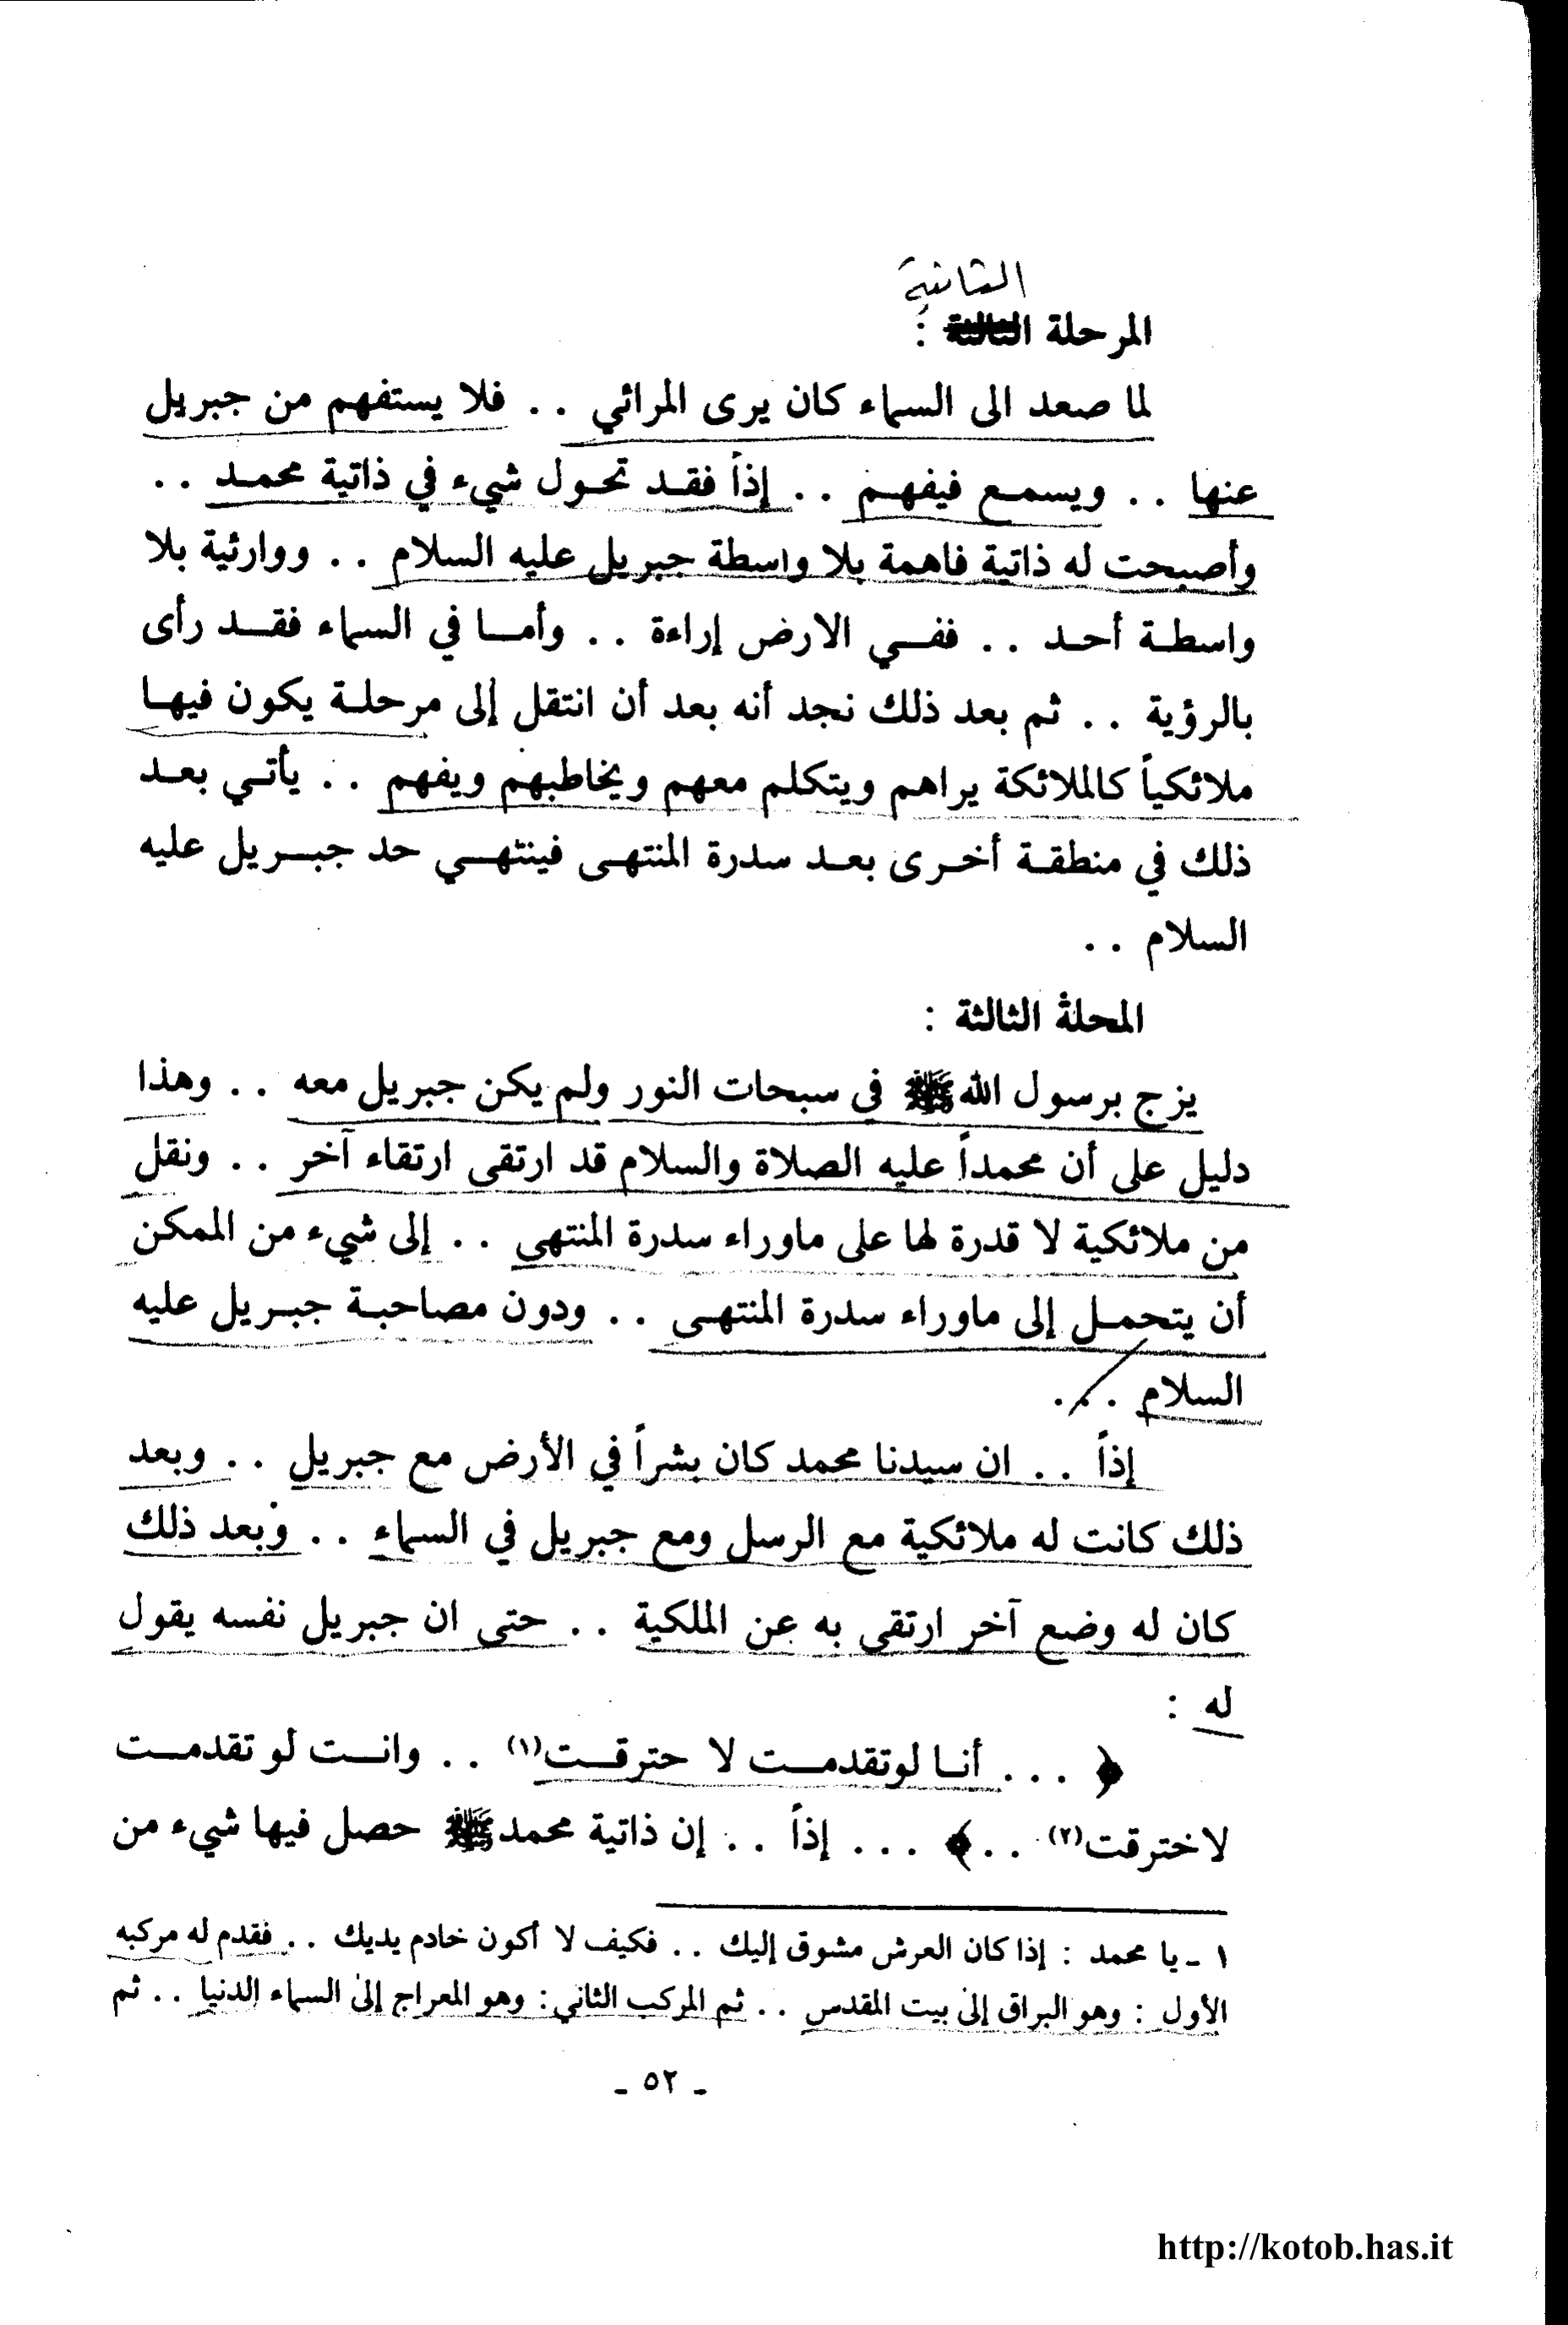 الثانية
المرحلة الثالثة :
لما صعد الى السماء كان يرى المرائي . . فلا يستفهم من جبريل
عنها . . ويسمع فيفهم . . إذاً فقد تحول شيء في ذاتية محمد . .
وأصبحت له ذاتية فاهمة بلا واسطة جبريل عليه السلام . . ووارثية بلا
واسطة أحد . . ففي الارض إراءة . . وأما في السماء فقد رأى
بالرؤية . . ثم بعد ذلك نجد أنه بعد أن انتقل إلى مرحلة يكون فيها
ملائكياً كالملائكة يراهم ويتكلم معهم ويخاطبهم ويفهم . . يأتي بعد
ذلك في منطقة أخرى بعد سدرة المنتهى فينتهي حد جبريل عليه
السلام . .
المحلة الثالثة :
يزج برسول الله ﷺ في سبحات النور ولم يكن جبريل معه . . وهذا
دليل على أن محمداً عليه الصلاة والسلام قد ارتقى ارتقاء آخر . . ونقل
من ملائكية لا قدرة لها على ماوراء سدرة المنتهى . . إلى شيء من الممكن
أن يتحمل إلى ماوراء سدرة المنتهى . . ودون مصاحبة جبريل عليه
السلام . . .
إذاً . . ان سيدنا محمد كان بشراً في الأرض مع جبريل . . وبعد
ذلك كانت له ملائكية مع الرسل ومع جبريل في السماء . . وبعد ذلك
كان له وضع آخر ارتقى به عن الملكية . . حتى ان جبريل نفسه يقول
له :
﴿ . . . أنا لوتقدمت لا حترقت(١) . . وانت لو تقدمت
لاخترقت(٢) . . ﴾ . . . إذاً . . إن ذاتية محمد ﷺ حصل فيها شيء من
١ ـ يا محمد : إذا كان العرش مشوق إليك . . فكيف لا أكون خادم يديك . . فقدم له مركبه
الأول : وهو البراق إلى بيت المقدس . . ثم المركب الثاني : وهو المعراج إلى السماء الدنيا . . ثم
ـ ٥٢ ـ
http://kotob.has.it